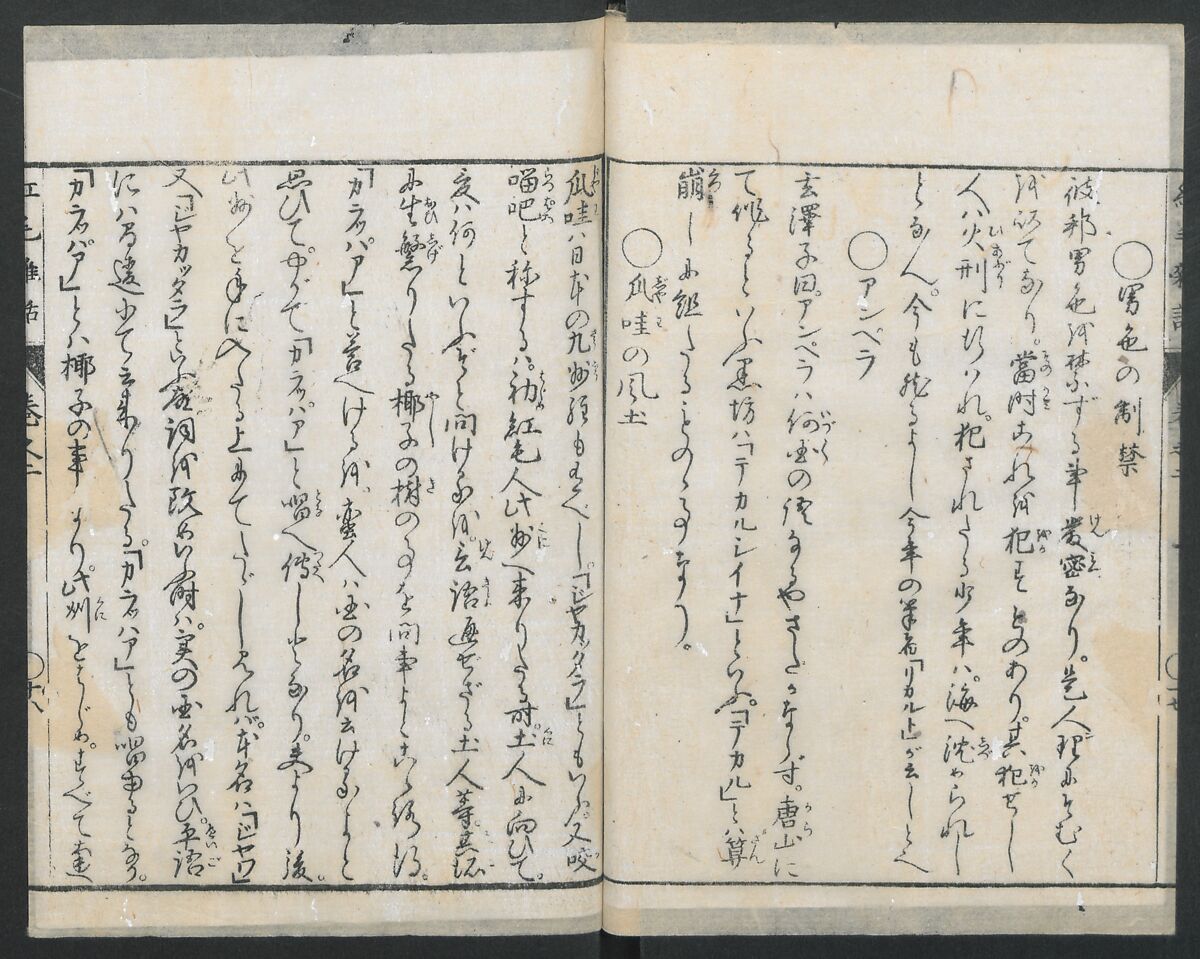 ○男色の制禁
彼邦男色を禁ずる事嚴密なり。是人理にそむく
を以てなり。當時あれを犯すものあり。其犯せし
人ハ火刑に行ハれ。犯されたる少年ハ。海へ沈められし
となん。今も然るよし今年の筆者「リカルト」が云しとぞ
○アンペラ
玄澤子曰。アンペラハ何国の語なるやさだかならず。唐山に
て作ると いふ黒坊ハ「テカルシイナ」といふ。「テカル」とハ算
崩しに組たることのよふなり。
○爪哇の風土
爪哇ハ日本の九州程もあるべし。「ジヤガタラ」ともいふ。又咬
𠺕吧と称するハ。初紅毛人此州へ来りたる時。土人に向ひて。
爰ハ何といふぞと問ける
を。言語通ぜざる土人等。其邊
に生繁りたる椰子の樹の事を問事よとこゝろ得。
「カラッパア」と答へけるを。蛮人ハ国の名を云けるよと
思ひて。やがて「カラッパア」と唱へ傳しとなり。夫より後。
此州を手に入たる上にてたゞしみれバ。本名ハ「ジヤワ」
又「ジヤカッタラ」といふ故詞を改めいふ時ハ。実の国名をいひ。平語
にハ間違にて云来りたる。「カラッハア」とも唱るとなり。
「カラッパア」とハ椰子の事なり。此州をはじめ。すべて東
紅毛雜話 巻之二 ○十八